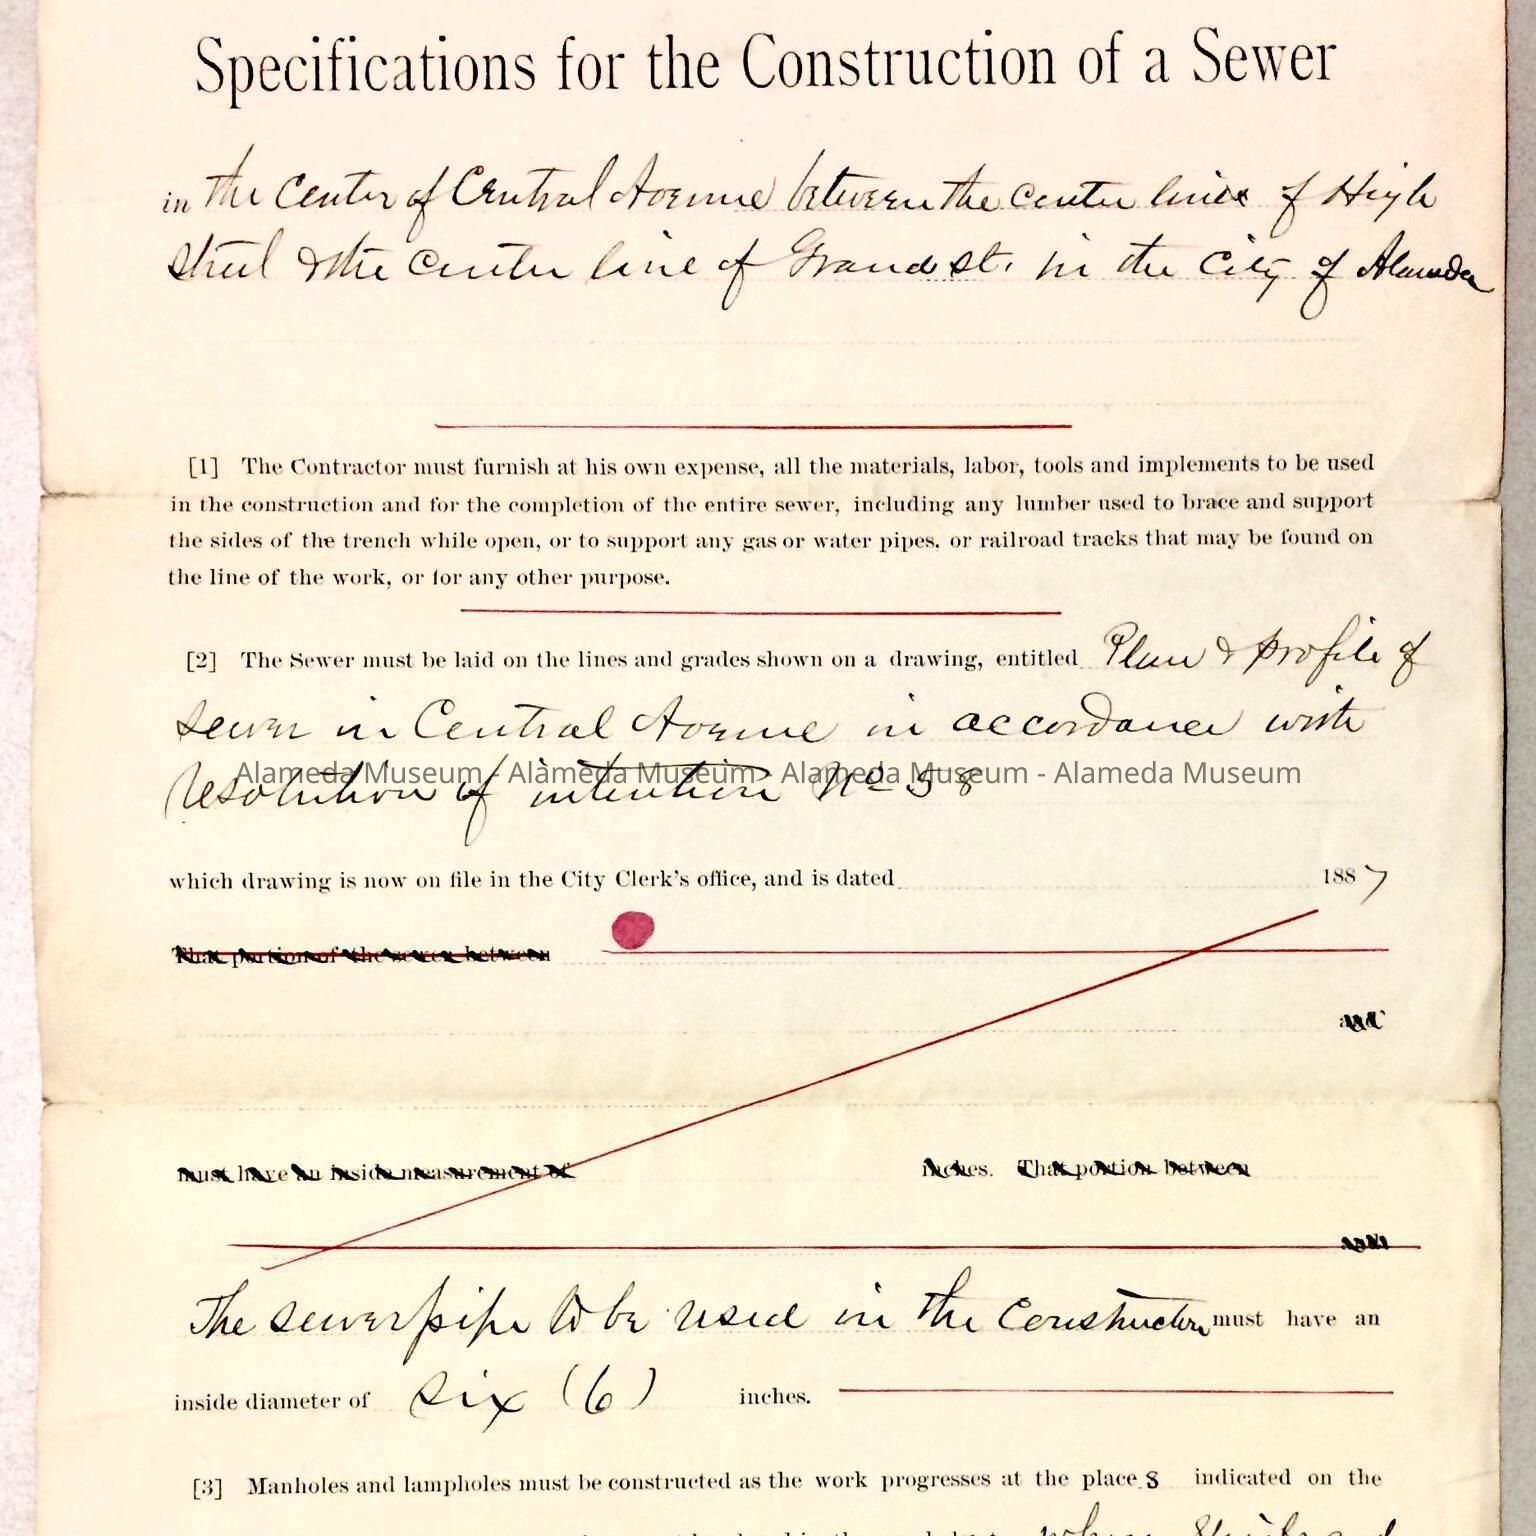 Specifications for the Construction of a Sewer
in the center of Central Avenue between the center line of High
Street & the center line of Grand st. in the City of Alameda
[1] The Contractor must furnish at his own expense, all the materials, labor, tools and implements to be used
in the construction and for the completion of the entire sewer, including any lumber used to brace and support
the sides of the trench while open, or to support any gas or water pipes. or railroad tracks that may be found on
the line of the work, or for any other purpose.
[2] The Sewer must be laid on the lines and grades shown on a drawing, entitled Plan & profile of
sewer in Central Avenue in accordance with
Resolution of intention No 58
Alameda Museum - Alameda Museum - Alameda Museum - Alameda Museum
which drawing is now on file in the City Clerk's office, and is dated 1887
That portion of the sewer between
and
must have an inside measurement of inches. That portion between
and
The sewer pipe to be used in the construction must have an
inside diameter of six (6) inches.
[3] Manholes and lampholes must be constructed as the work progresses at the places indicated on the